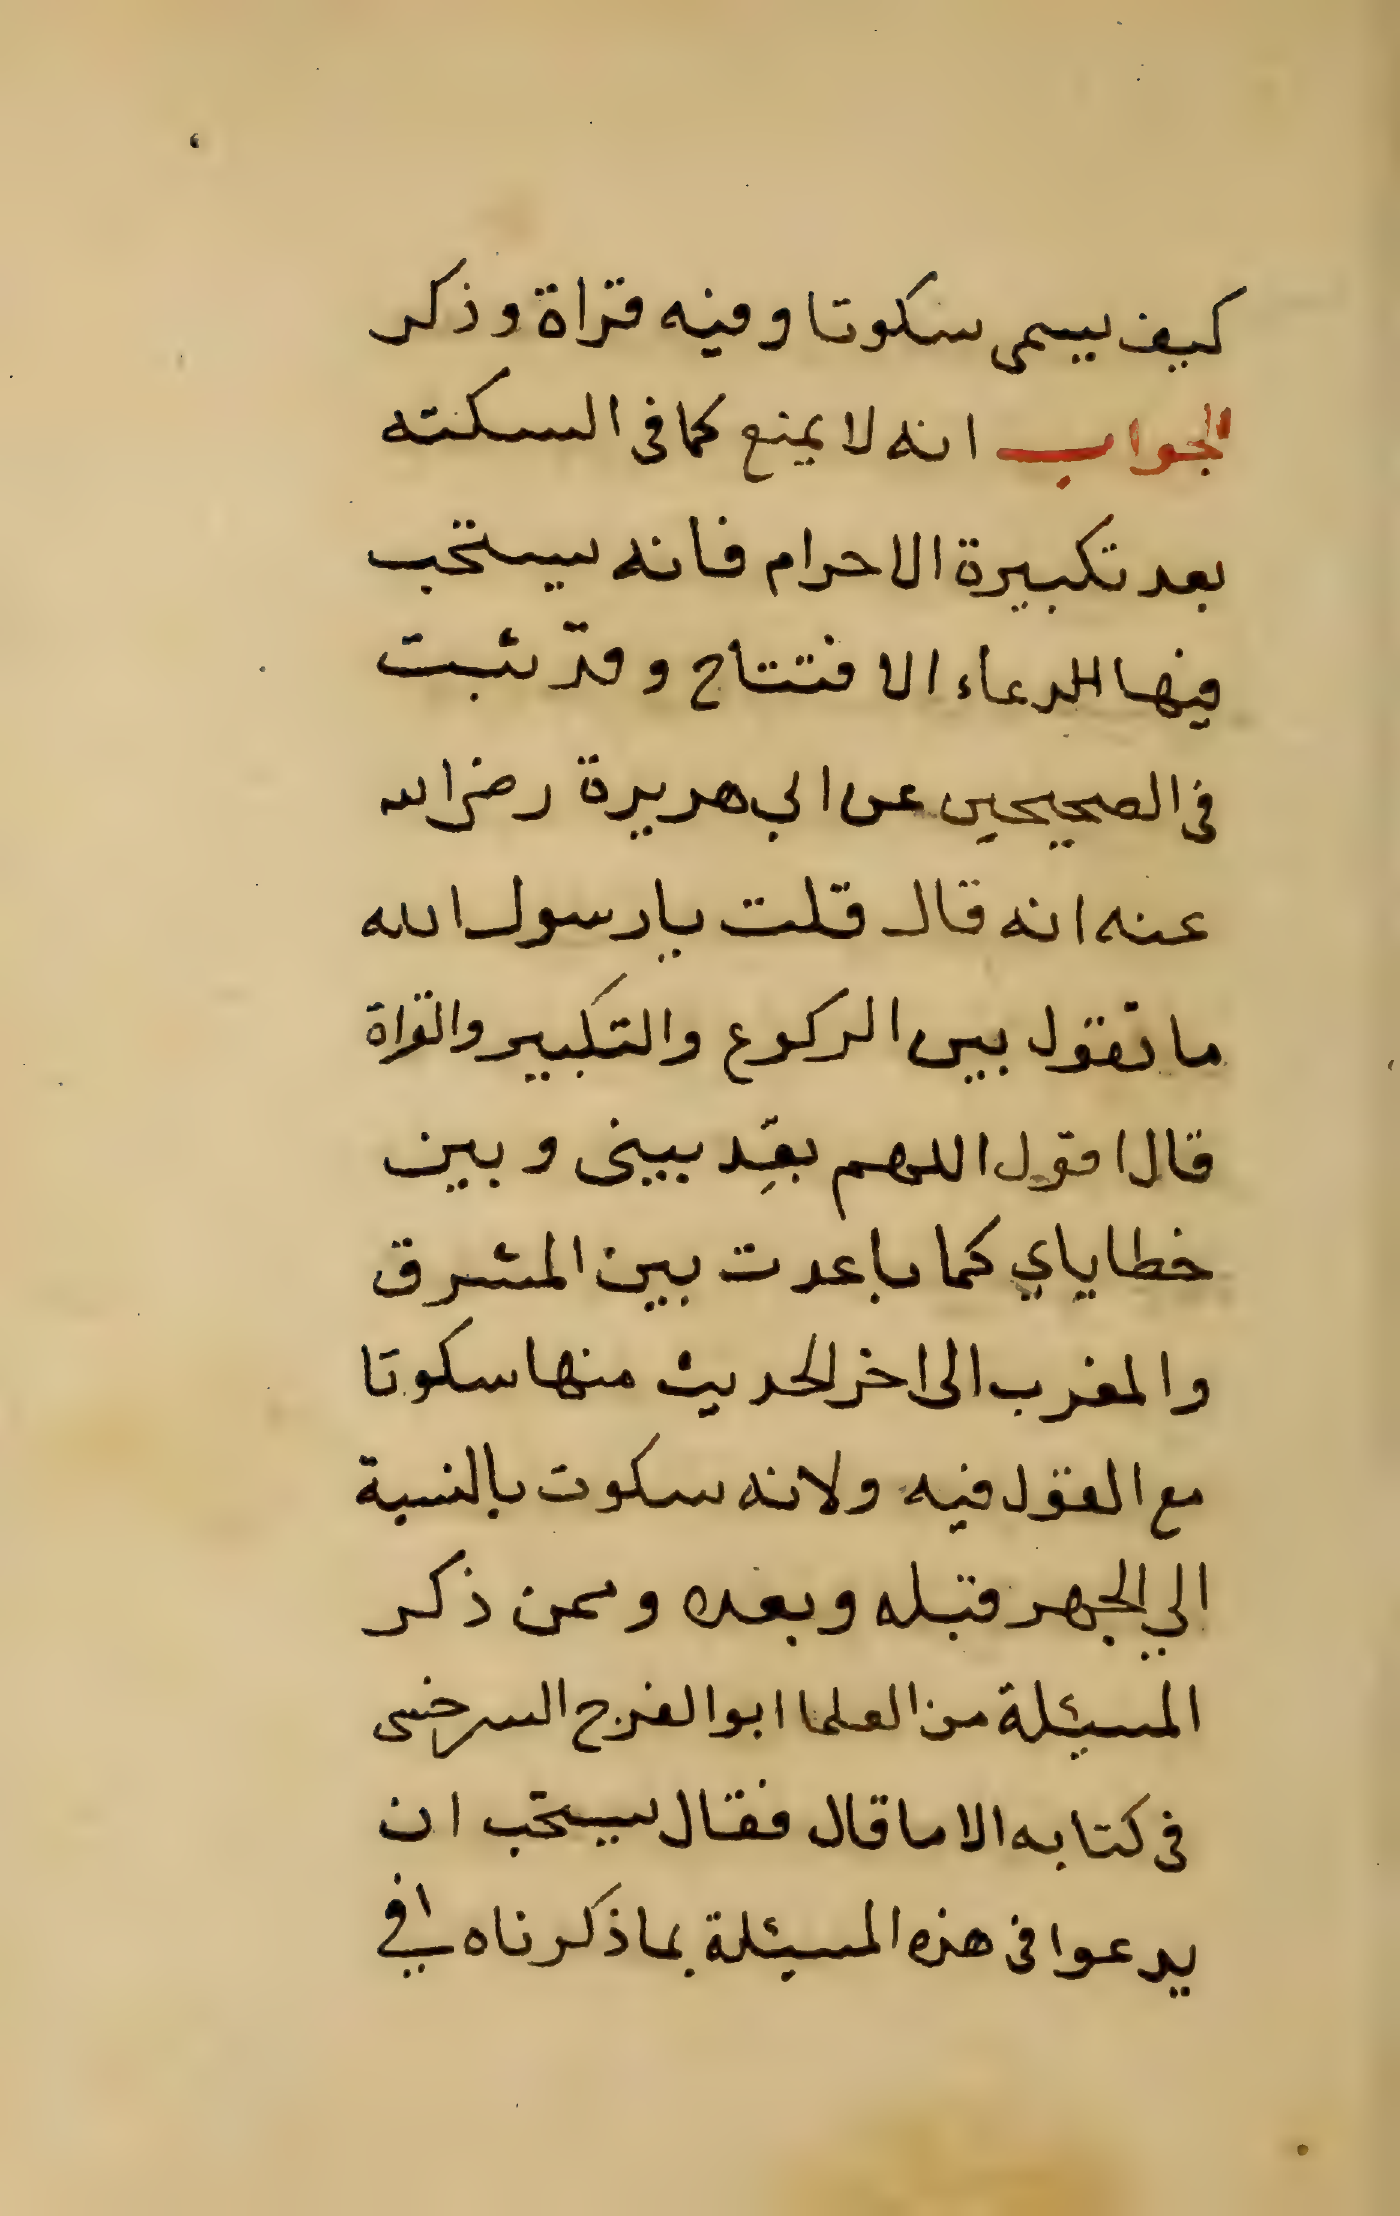 كيف يسمى سكوتا وفيه قراة وذكر
الجواب انه لا يمنع كما فى السكته
بعد تكبيرة الاحرام فانه يستحب
فيها الدعاء الافتتاح وقد ثبت
فى الصحيحين عن ابي هريرة رضى الله
عنه انه قال قلت يا رسول الله
ما تقول بين الركوع والتكبير والقراة
قال اقول اللهم بعد بينى وبين
خطاياي كما باعدت بين المشرق
والمغرب الى اخر الحديث منها سكوتا
مع القول فيه ولانه سكوت بالنسبة
الي الجهر قبله وبعده وممن ذكر
المسيئلة من العلما ابو الفرج السرخسى
فى كتابه الاماقال فقال يستحب ان
يدعوا فى هذه المسيئلة بما ذكرناه